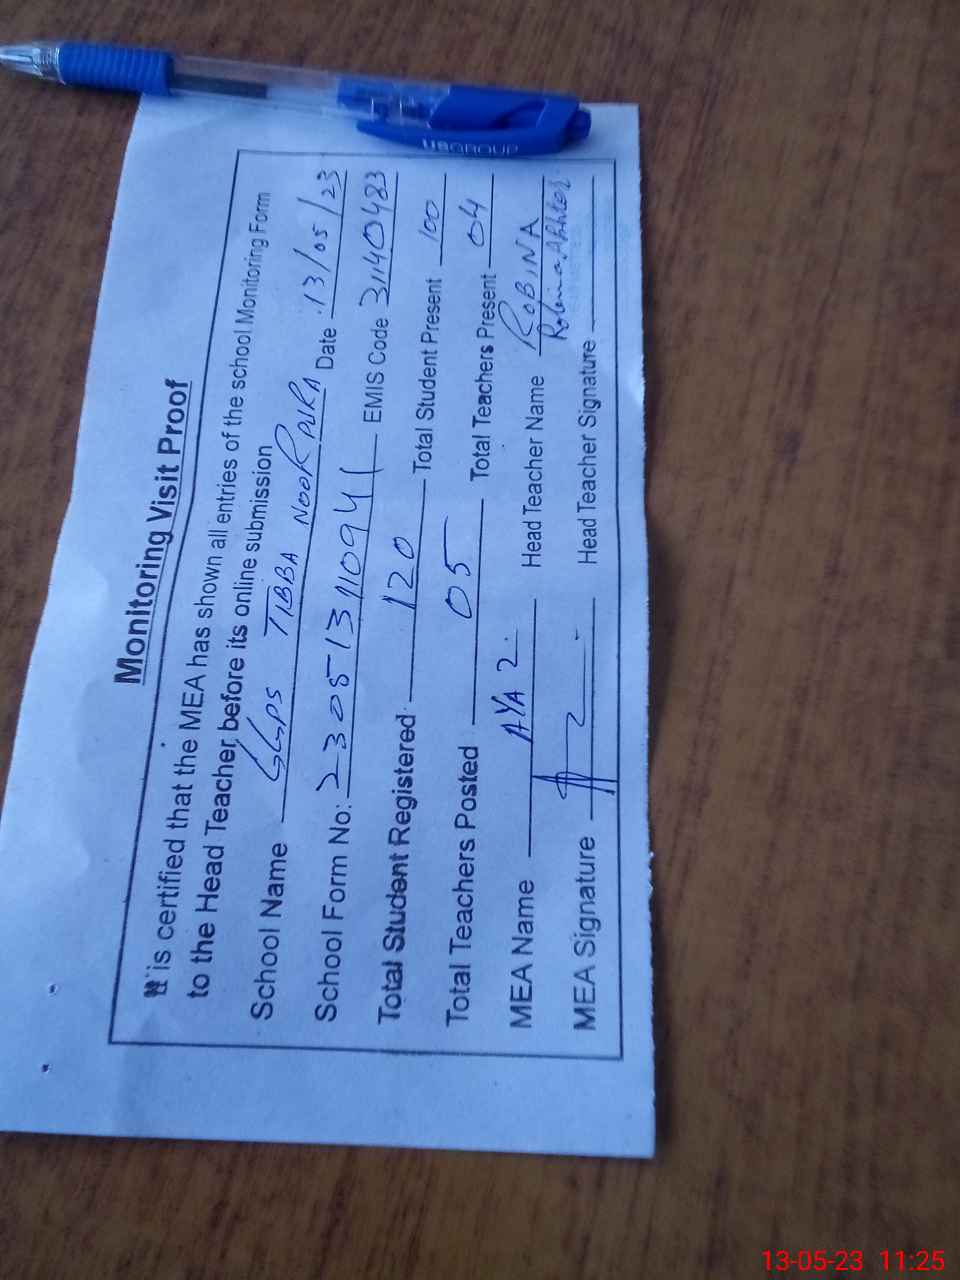 Monitoring Visit Proof
It is certified that the MEA has shown all entries of the school Monitoring Form
to the Head Teacher, before its online submission
School Name GGPS TIBBA NOOR PURA Date 13/05/23
School Form No: 2305131110941 EMIS Code 31140483
Total Student Registered 120 Total Student Present 100
Total Teachers Posted 05 Total Teachers Present 04
MEA Name Head Teacher Name ROBINA
MEA Signature Head Teacher Signature Robina Akhter
USGROUP
13-05-23 11:25